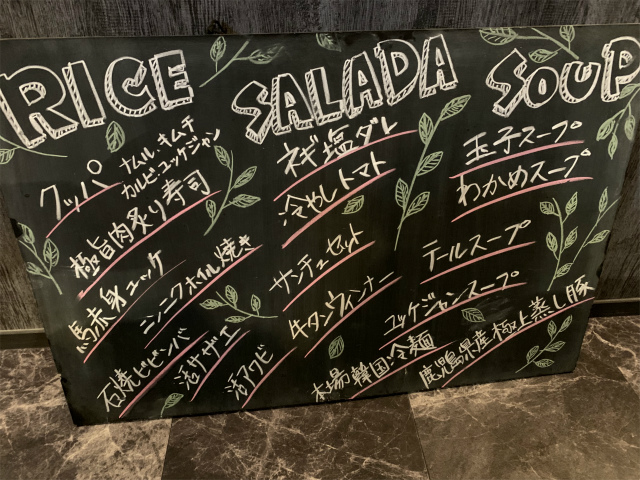 RICE
クッパ ナムル、キムチ
カルビ、ユッケジャン
極旨肉炙り寿司
馬赤身ユッケ
ニンニクホイル焼き
石焼ビビンバ
活サザエ
活アワビ
SALADA
ネギ塩ダレ
冷やしトマト
サンチュセット
牛タンウィンナー
本場韓国冷麺
SOUP
玉子スープ
わかめスープ
テールスープ
ユッケジャンスープ
鹿児島県産極上蒸し豚